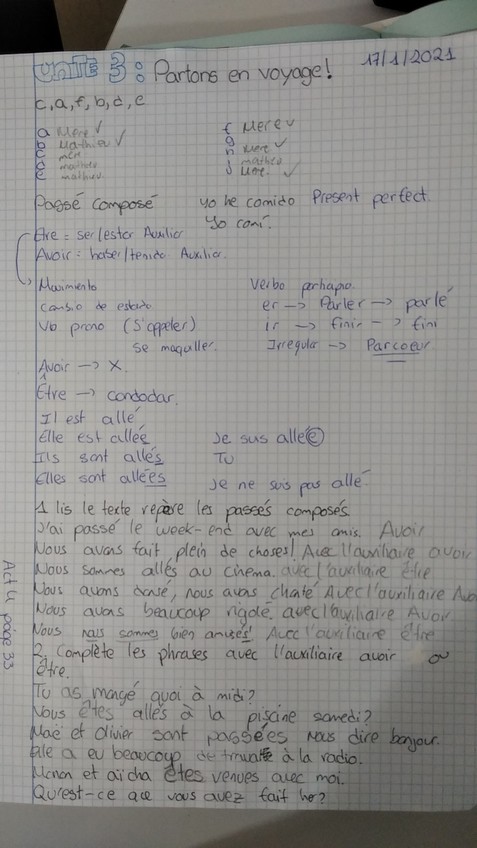 UNITÉ 3: Partons en voyage! 17/1/2021
c, a, f, b, d, e
a Mère ✓ f Mère ✓
b Mathieu ✓ g
c mère h Mère ✓
d mathieu j mathieu
e mathieu J Mère. ✓
Passé composé yo he comido Present perfect.
Yo comí.
Être = ser/estar Auxiliar
Avoir = haber/tenido Auxiliar.
Movimiento Verbo
cambio de estado er → Parler → parlé
Vb prono (S'appeler) ir → finir → fini
Se maquiller. Irregular → Parcoeur
Avoir → X.
Être → condodar.
Il est allé
Elle est allée Je suis allé(e)
Ils sont allés Tu
Elles sont allées Je ne suis pas allé.
1 lis le texte repère les passés composés
J'ai passé le week-end avec mes amis. Avoir
Nous avons fait plein de choses! Avec l'auxiliaire avoir
Nous sommes allés au cinema. avec l'auxiliaire être
Nous avons dansé, nous avons chaté Avec l'auxiliaire Avo
Nous avons beaucoup rigolé. avec l'auxiliaire Avoir
Nous nous sommes bien amusés! Avec l'auxiliaire être
2. Complète les phrases avec l'auxiliaire avoir ou
être.
Act 4 page 33
Tu as mangé quoi à midi?
Nous êtes allés à la piscine samedi?
Maé et Olivier sont passées nous dire bonjour.
Elle a eu beaucoup de à la radio.
Manon et aïcha êtes venues avec moi.
Qu'est-ce que vous avez fait